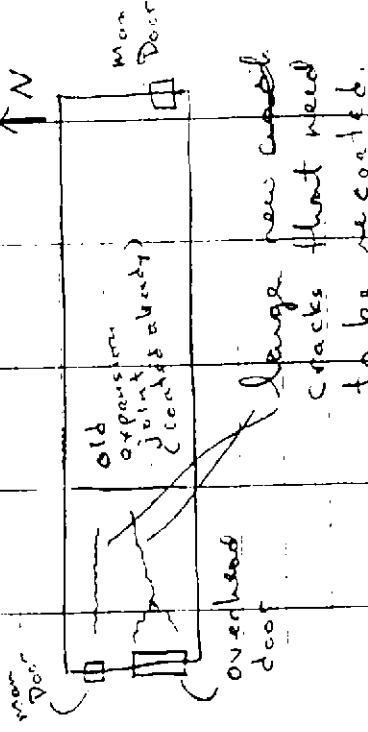 N
man
Door
man
Door
old
expansion
joint
(coated already)
overhead
door
large new
cracks that need
to be recoated.